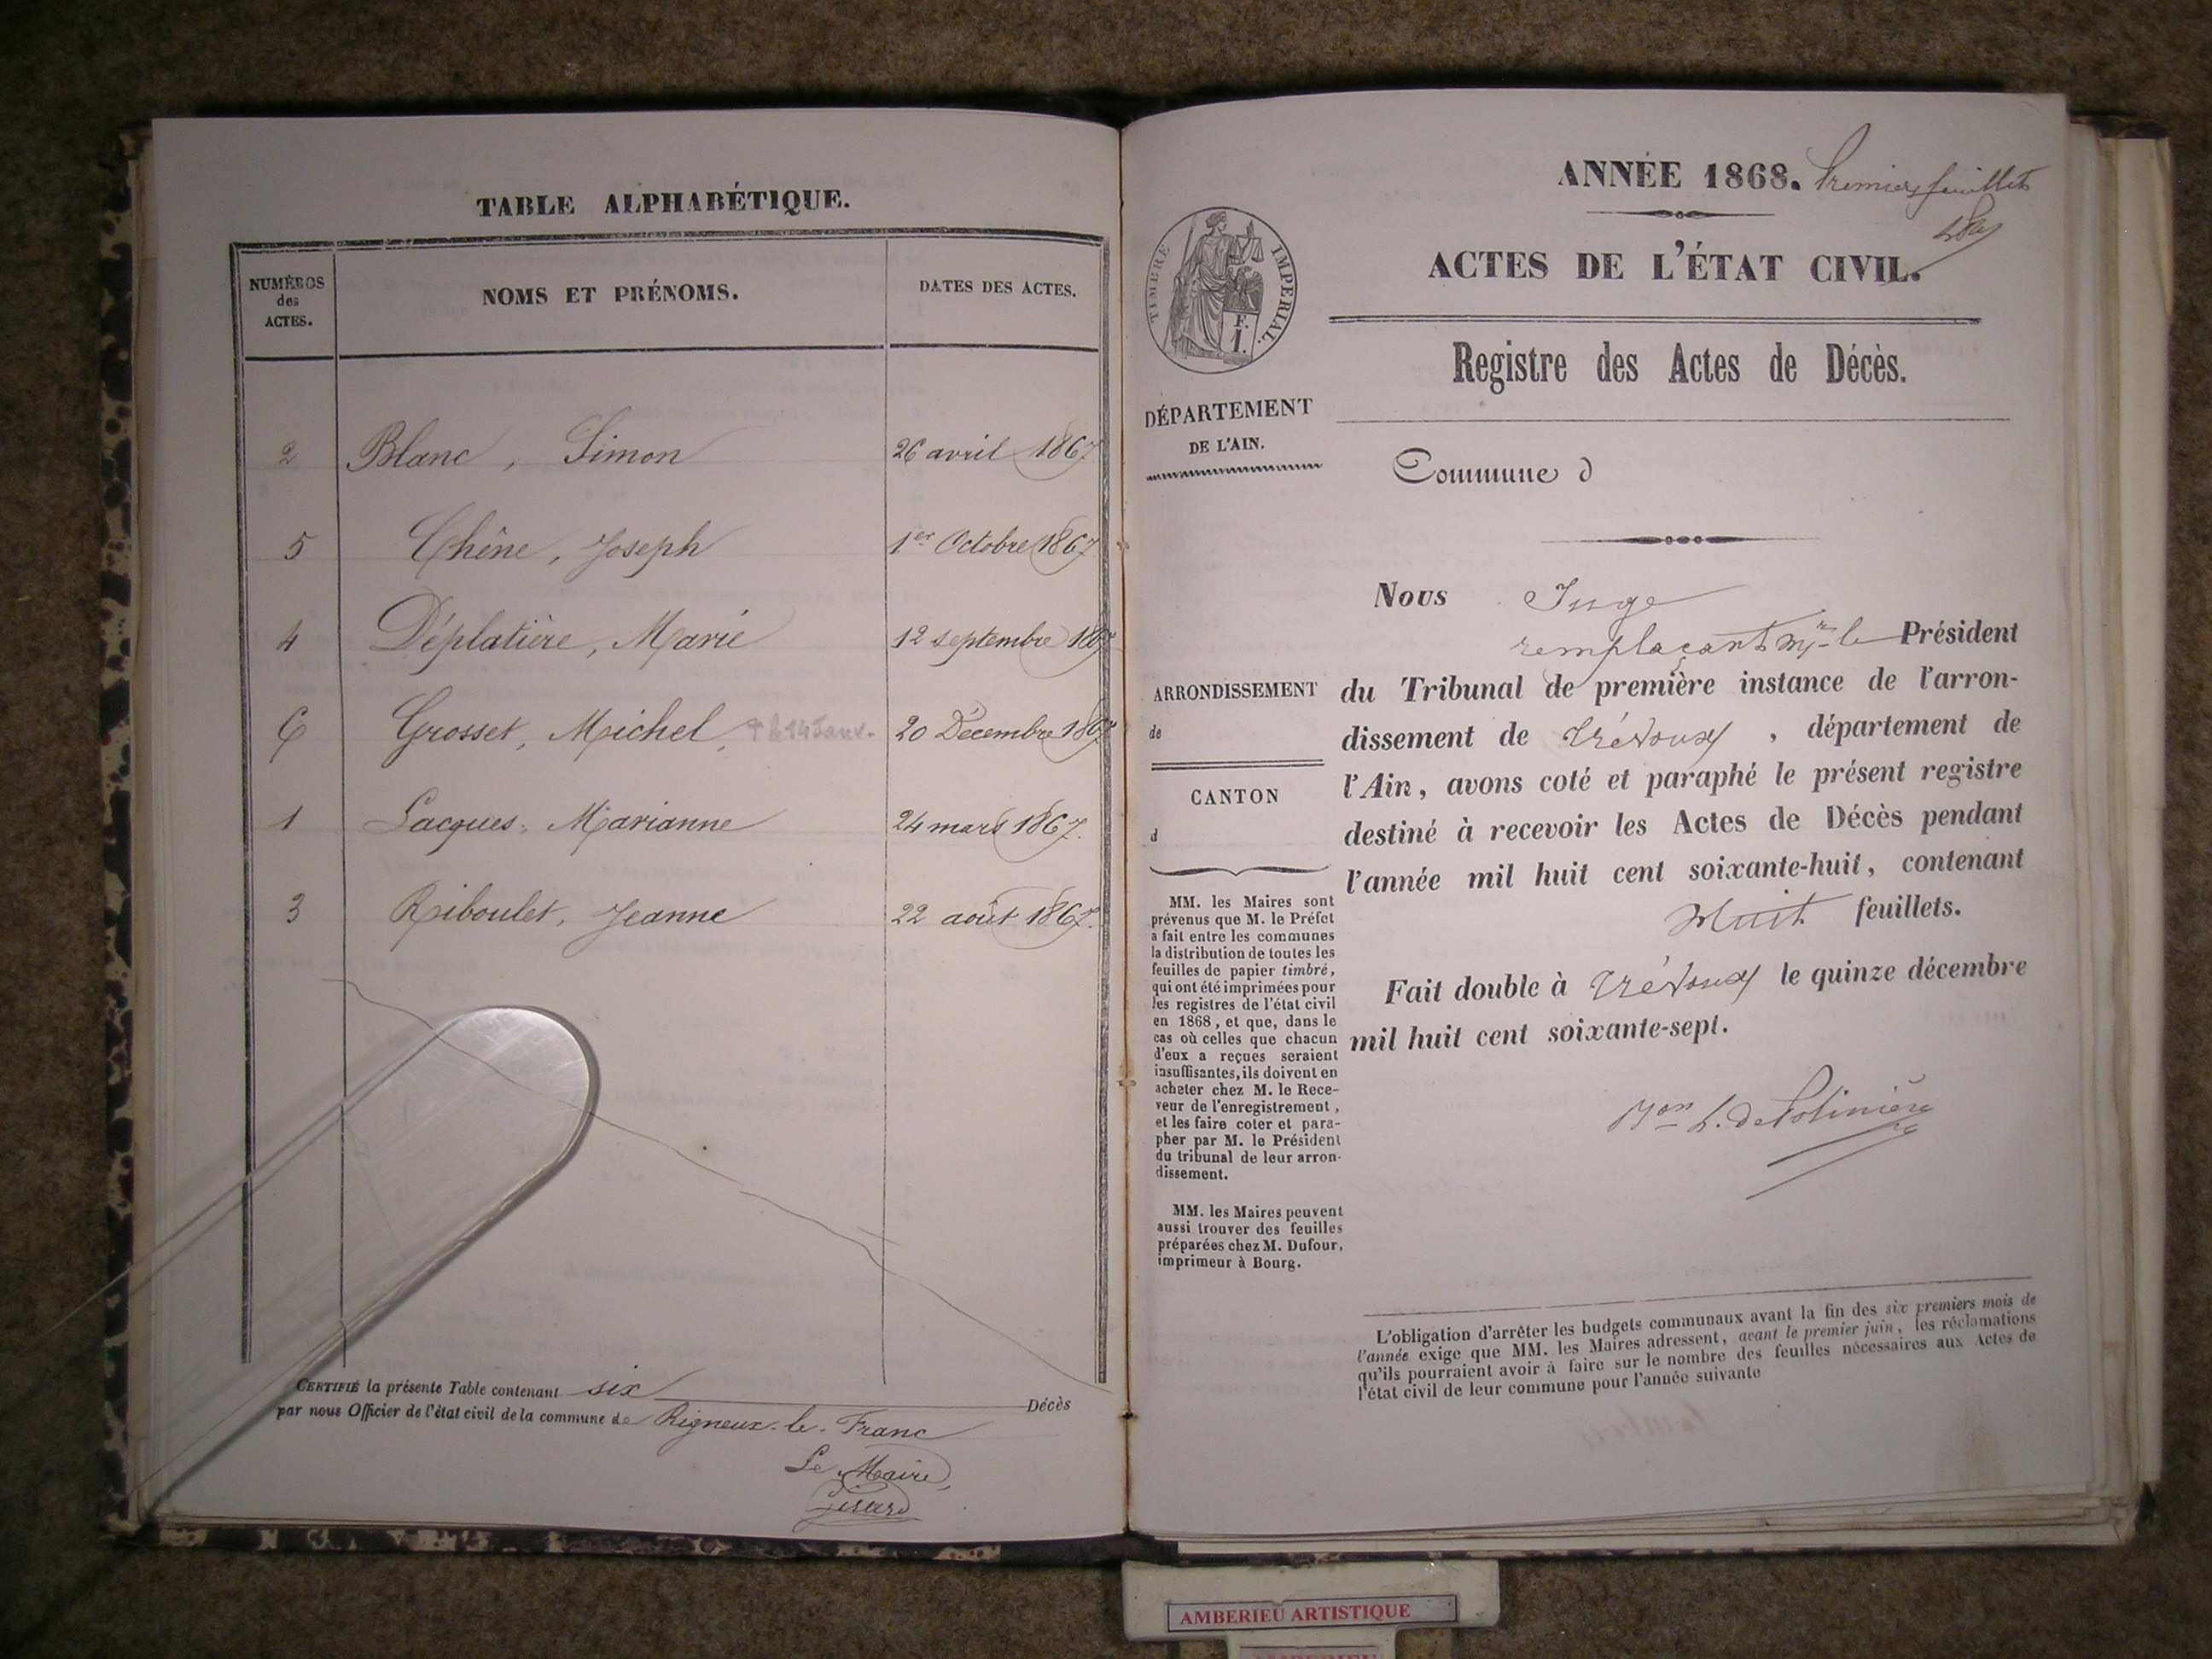 TABLE ALPHABÉTIQUE.
NUMÉROS
des
ACTES.
NOMS ET PRÉNOMS.
DATES DES ACTES.
2 Blanc, Simon 26 avril 1867
5 Chêne, Joseph 1er Octobre 1867
4 Déplatière, Marie 12 septembre 1867
6 Grosset, Michel, + le 14 Janv. 20 Décembre 1867
1 Jacques, Marianne 24 mars 1867.
3 Riboulet, Jeanne 22 août 1867.
CERTIFIÉ la présente Table contenant six Décès
par nous Officier de l'état civil de la commune de Rigneux-le-Franc
Le Maire,
ANNÉE 1868. Premier feuillet
ACTES DE L'ÉTAT CIVIL.
TIMBRE IMPERIAL.
F.
1.
Registre des Actes de Décès.
DÉPARTEMENT
DE L'AIN.
Commune d
Nous Juge
remplaçant Mr le Président
ARRONDISSEMENT
de
CANTON
d
du Tribunal de première instance de l'arron-
dissement de Trévoux, département de
l'Ain, avons coté et paraphé le présent registre
destiné à recevoir les Actes de Décès pendant
l'année mil huit cent soixante-huit, contenant
Huit feuillets.
Fait double à Trévoux le quinze décembre
mil huit cent soixante-sept.
Bon L. de Polinière
MM. les Maires sont
prévenus que M. le Préfet
a fait entre les communes
la distribution de toutes les
feuilles de papier timbré,
qui ont été imprimées pour
les registres de l'état civil
en 1868, et que, dans le
cas où celles que chacun
d'eux a reçues seraient
insuffisantes, ils doivent en
acheter chez M. le Rece-
veur de l'enregistrement,
et les faire coter et para-
pher par M. le Président
du tribunal de leur arron-
dissement.
MM. les Maires peuvent
aussi trouver des feuilles
préparées chez M. Dufour,
imprimeur à Bourg.
L'obligation d'arrêter les budgets communaux avant la fin des six premiers mois de
l'année exige que MM. les Maires adressent, avant le premier juin, les réclamations
qu'ils pourraient avoir à faire sur le nombre des feuilles nécessaires aux Actes de
l'état civil de leur commune pour l'année suivante
AMBERIEU ARTISTIQUE